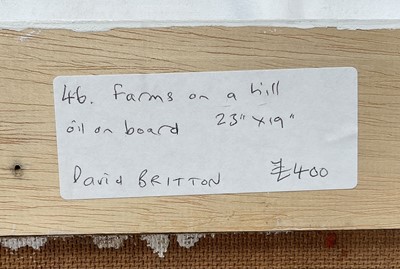 46. Farms on a hill
oil on board 23" x 19"
David BRITTON £400